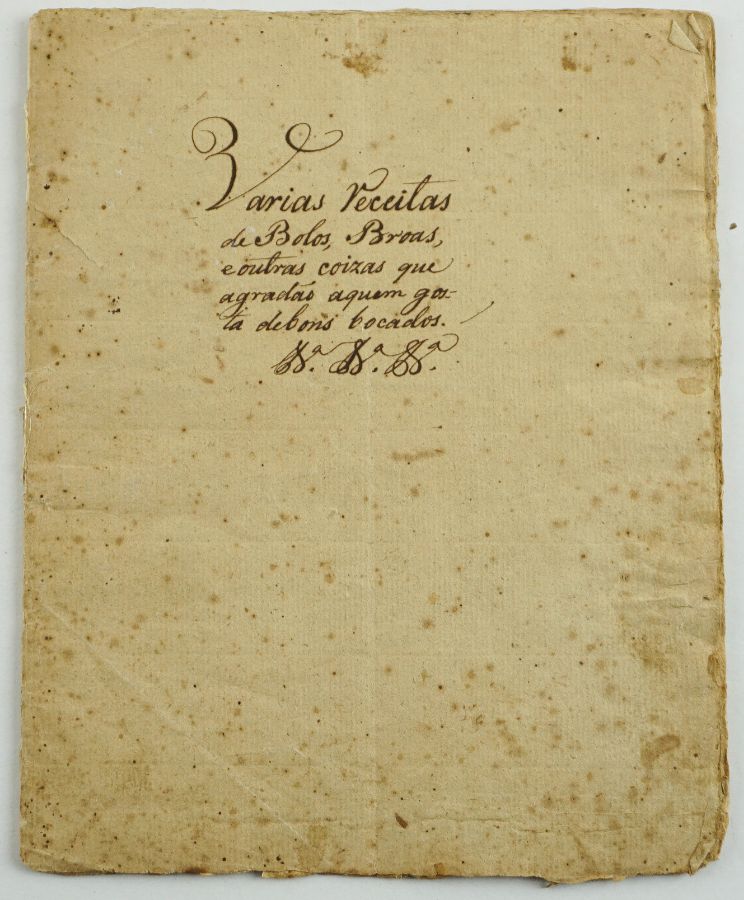 Varias Receitas
de Bolos, Broas,
e outras coizas que
agradão aquem gos-
ta debons bocados.